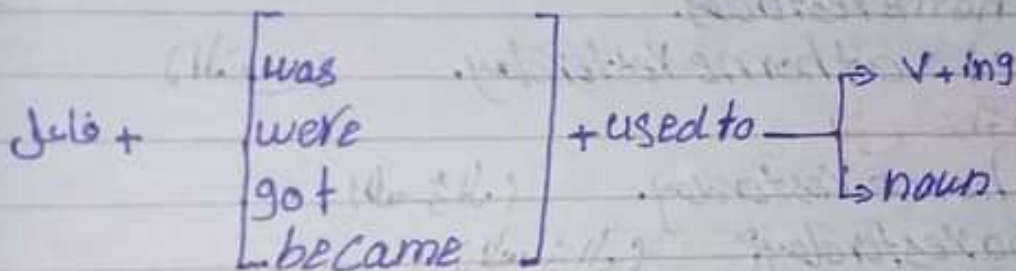 فاعل + [was were got became] + used to → V+ing
→ noun